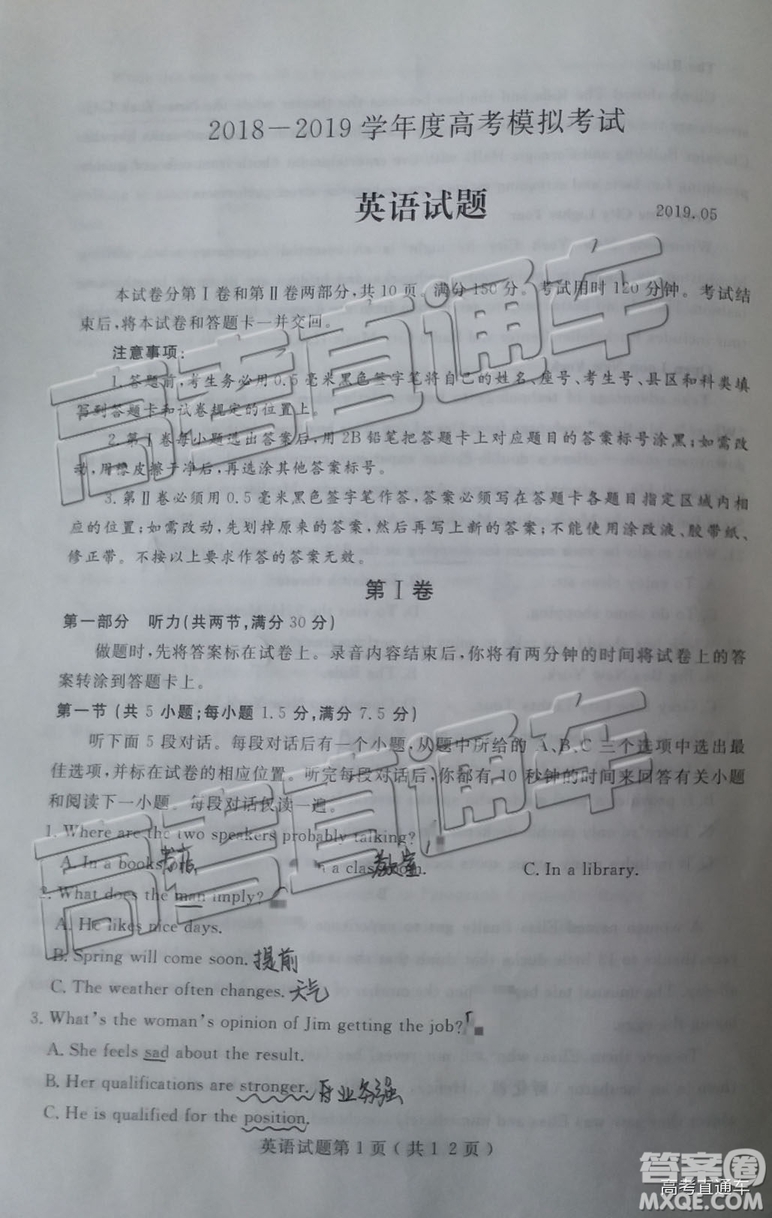 2018－2019 学年度高考模拟考试
英语试题
2019.05
本试卷分第Ⅰ卷和第Ⅱ卷两部分,共10页。满分150分。考试用时120分钟。考试结
束后,将本试卷和答题卡一并交回。
注意事项:
1.答题前,考生务必用0.5毫米黑色签字笔将自己的姓名、座号、考生号、县区和科类填
写到答题卡和试卷规定的位置上。
2.第Ⅰ卷每小题选出答案后,用2B铅笔把答题卡上对应题目的答案标号涂黑;如需改
动,用橡皮擦干净后,再选涂其他答案标号。
3.第Ⅱ卷必须用0.5毫米黑色签字笔作答,答案必须写在答题卡各题目指定区域内相
应的位置;如需改动,先划掉原来的答案,然后再写上新的答案;不能使用涂改液、胶带纸、
修正带。不按以上要求作答的答案无效。
第Ⅰ卷
第一部分 听力(共两节,满分30分)
做题时,先将答案标在试卷上。录音内容结束后,你将有两分钟的时间将试卷上的答
案转涂到答题卡上。
第一节 (共5小题;每小题1.5分,满分7.5分)
听下面5段对话。每段对话后有一个小题,从题中所给的A、B、C三个选项中选出最
佳选项,并标在试卷的相应位置。听完每段对话后,你都有10秒钟的时间来回答有关小题
和阅读下一小题。每段对话仅读一遍。
1. Where are the two speakers probably talking?
A. In a books 书店 n a class 教室 om. C. In a library.
2. What does the man imply?
A. He likes nice days.
B. Spring will come soon. 提前
C. The weather often changes. 天气
3. What's the woman's opinion of Jim getting the job?
A. She feels sad about the result.
B. Her qualifications are stronger. 业务强
C. He is qualified for the position.
英语试题第1页(共12页)
高考直通车
高考直通车
答案圈
高考直通车
MXQE.COM